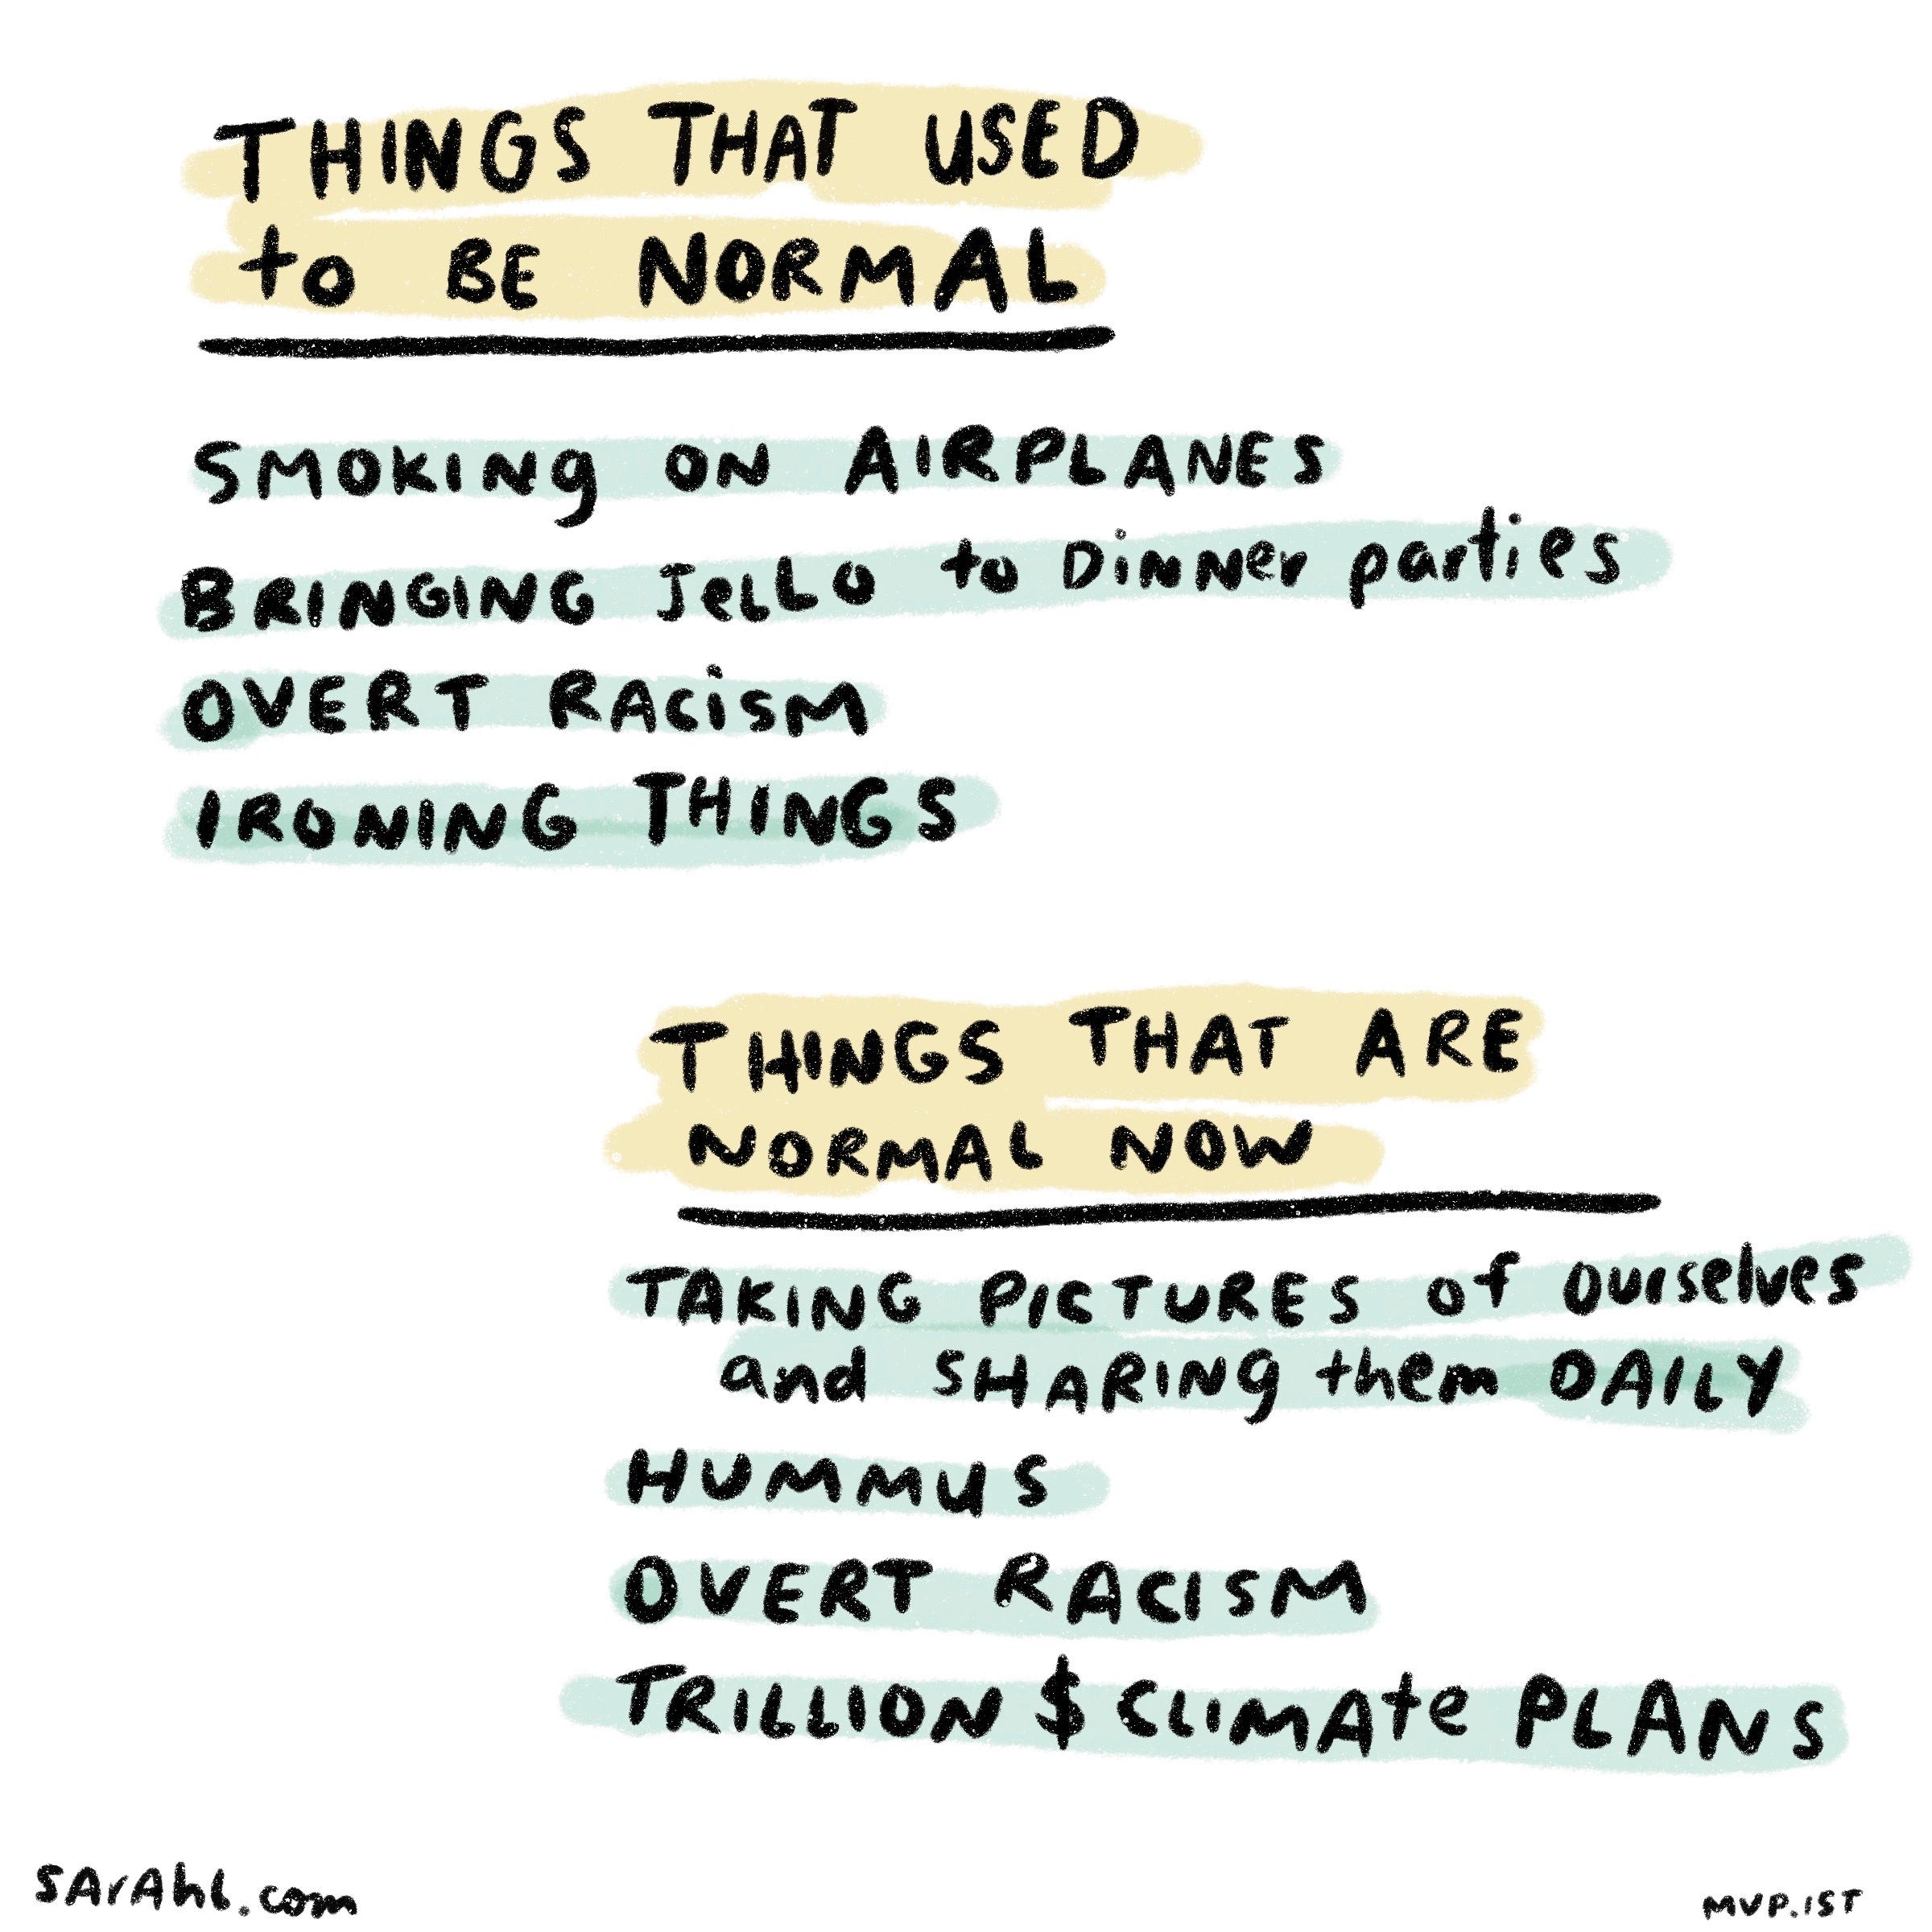 THINGS THAT USED
to BE NORMAL
SMOKINg ON AIRPLANES
BRINGING JeLLO to DiNNer parties
OVERT RACiSM
IRONING THINGS
THINGS THAT ARE
NORMAL NOW
TAKING PICTURES of ourselves
and SHARINg them DAILY
HUMMUS
OVERT RACISM
TRILLION $ CLIMAte PLANS
SArAhL.com
MVP.IST